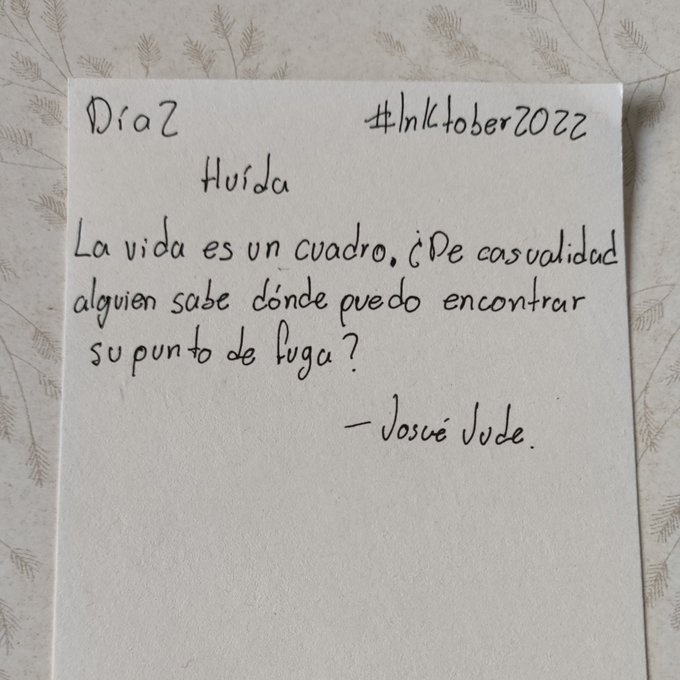 Día 2 #InKtober2022
Huída
La vida es un cuadro. ¿De casualidad
alguien sabe dónde puedo encontrar
su punto de fuga?
- Josué Jude.